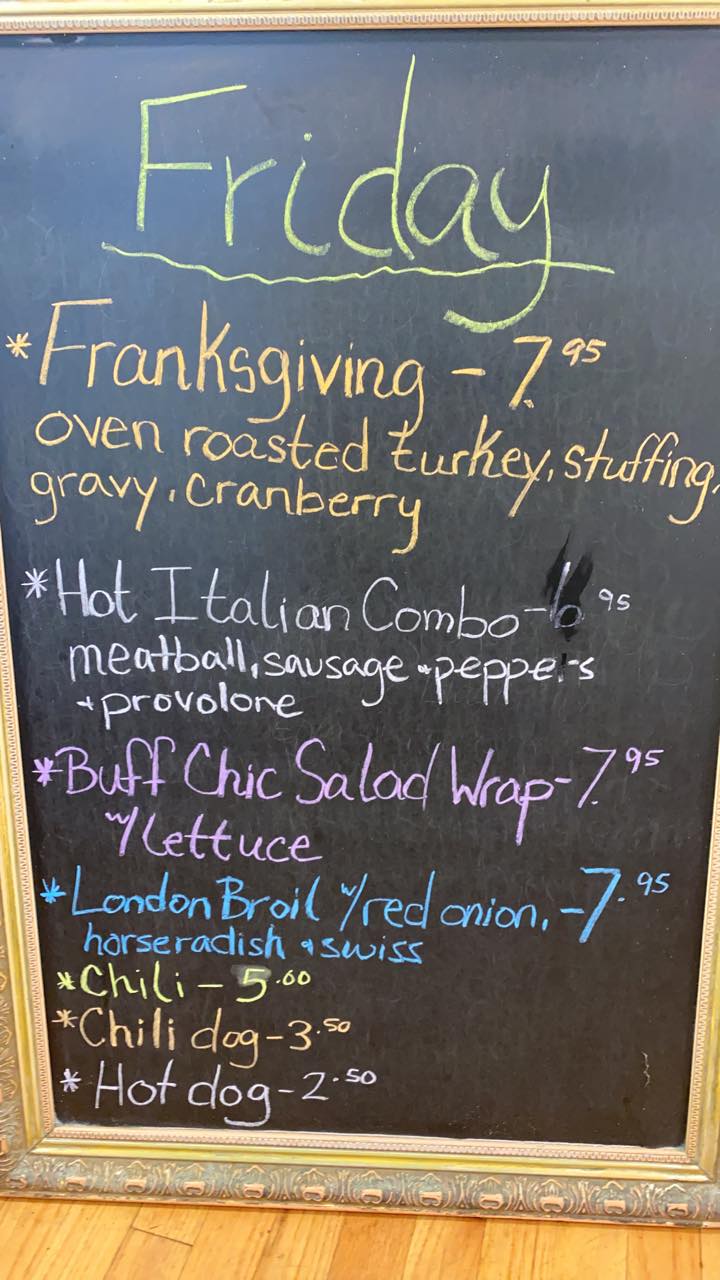 Friday
*Franksgiving - 7.95
oven roasted turkey, stuffing,
gravy, cranberry
*Hot Italian Combo - 6 95
meatball, sausage + peppers
+ provolone
*Buff Chic Salad Wrap - 7.95
w/ lettuce
*London Broil w/ red onion, - 7.95
horseradish + swiss
*Chili - 5.00
*Chili dog - 3.50
*Hot dog - 2.50